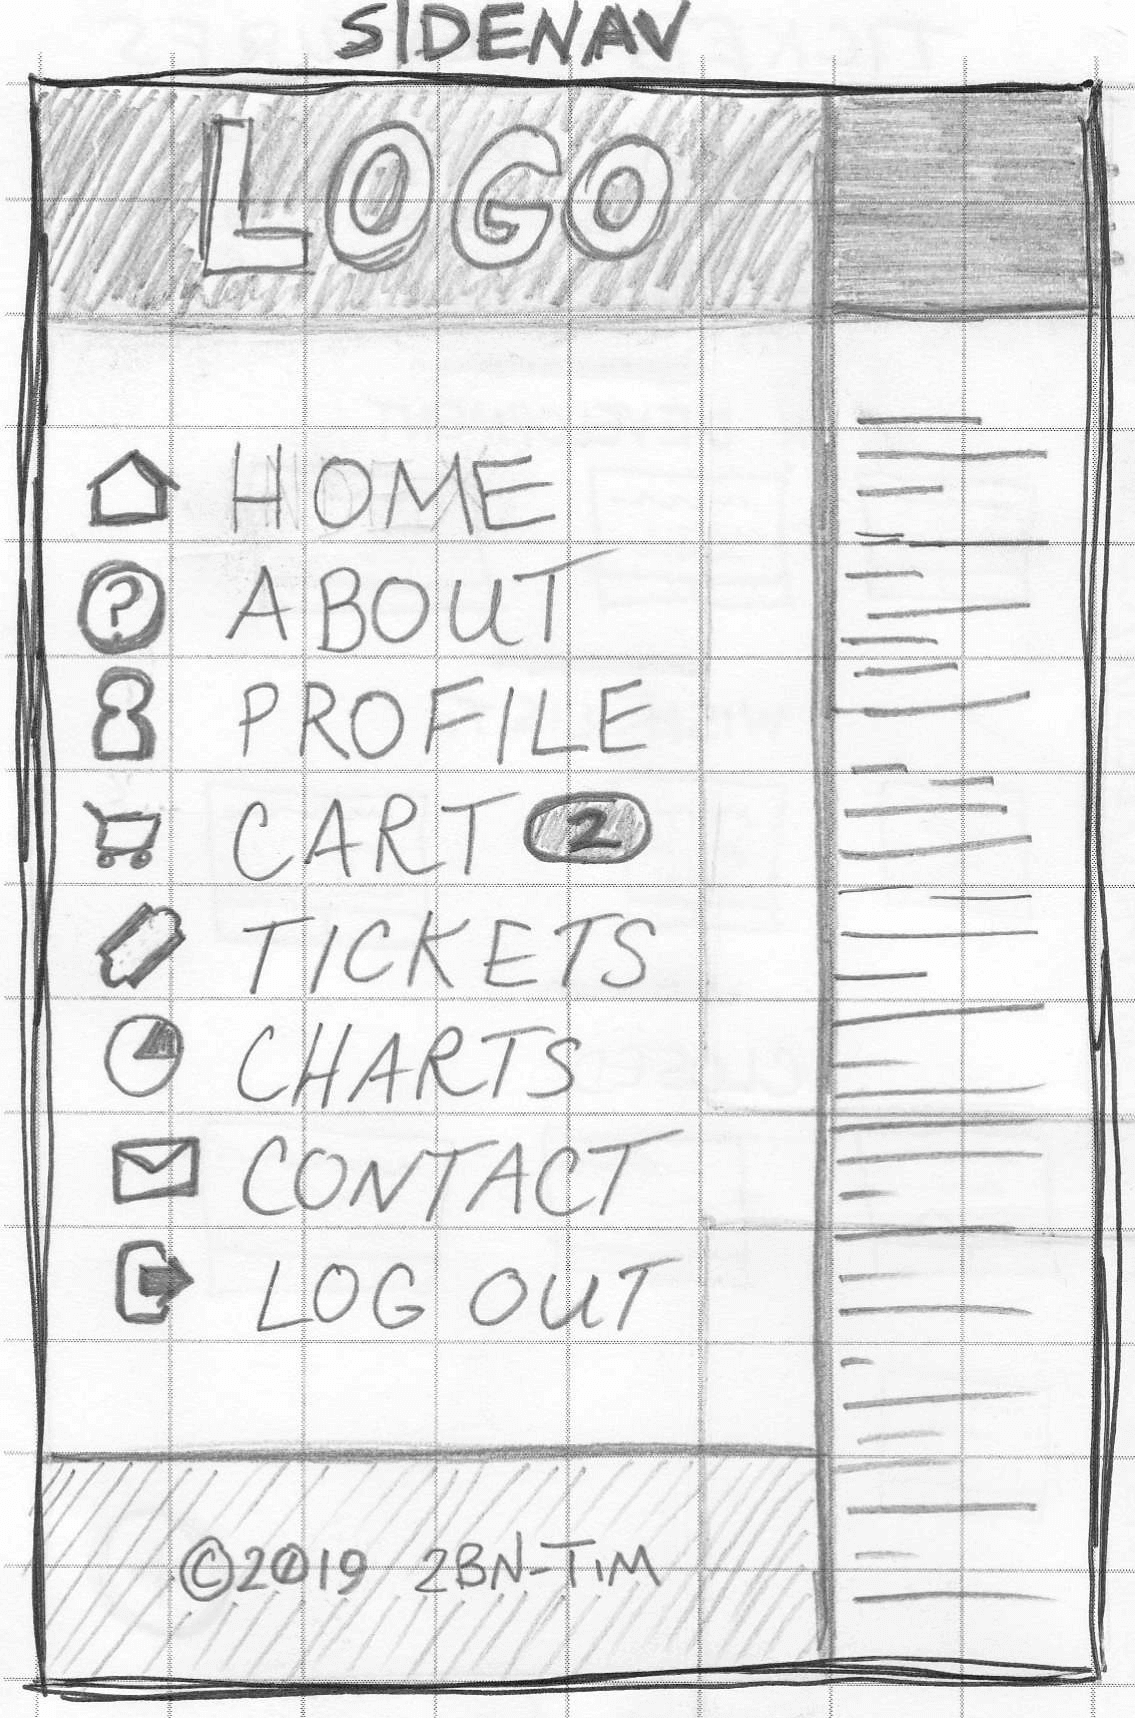 SIDENAV
LOGO
HOME
? ABOUT
PROFILE
CART 2
TICKETS
CHARTS
CONTACT
LOG OUT
©2019 2BN-TIM